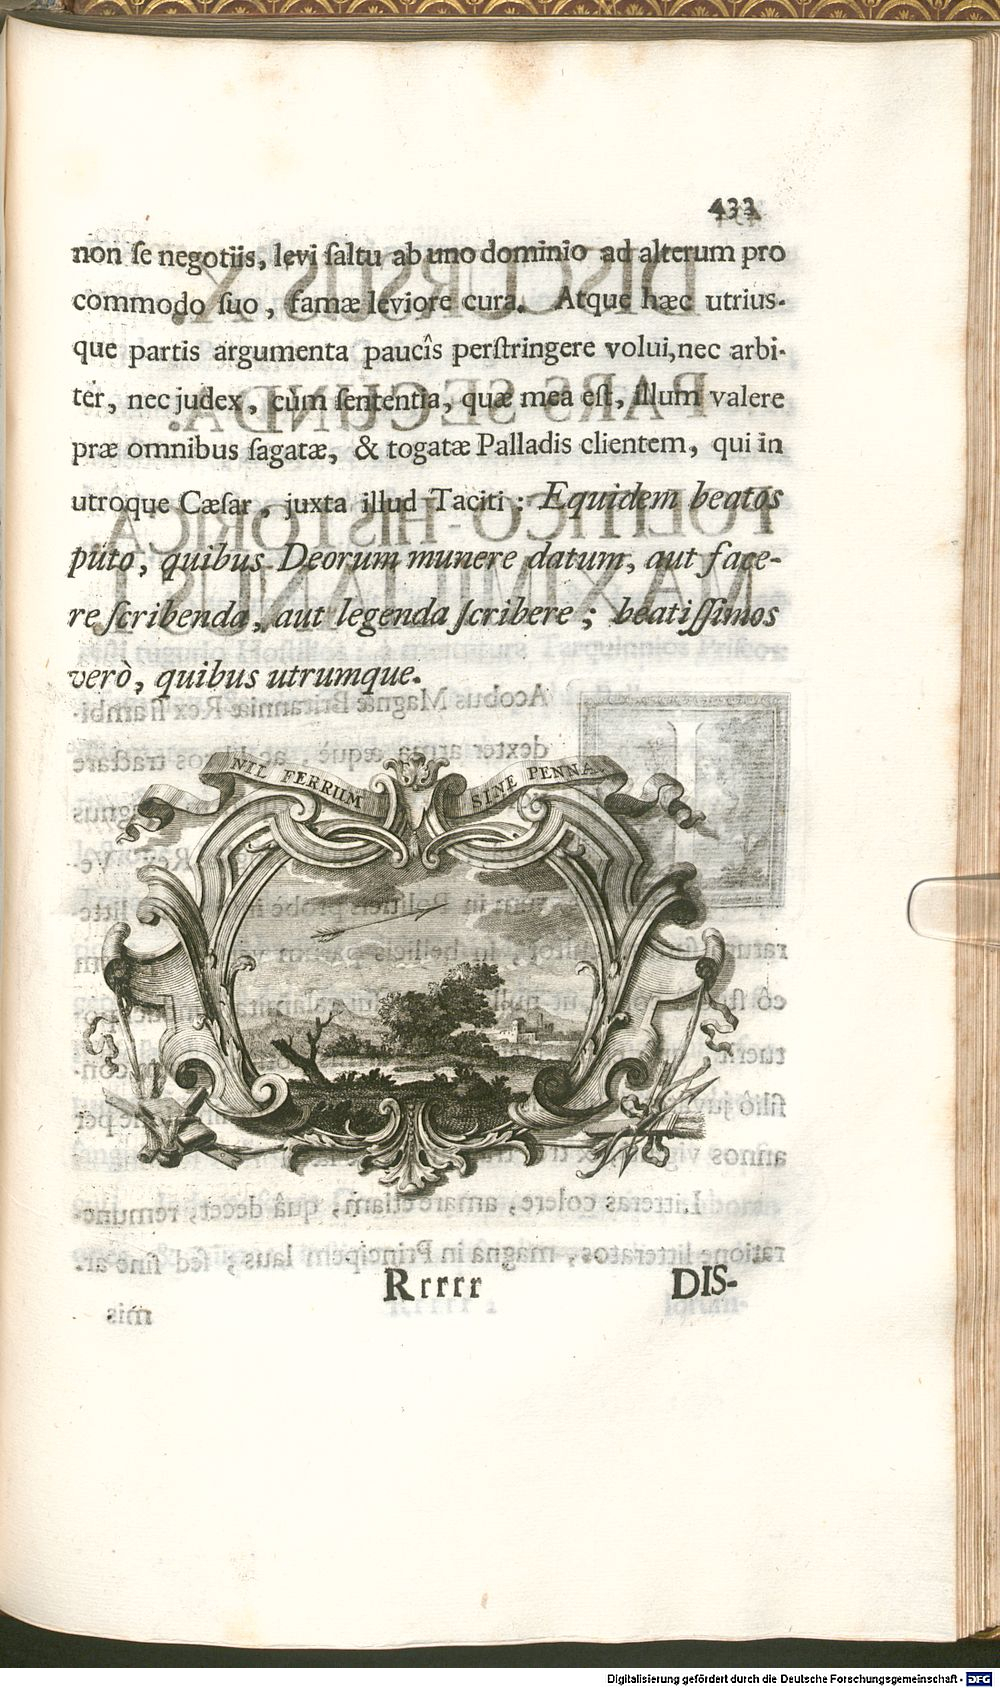 433
non ſe negotiis, levi ſaltu ab uno dominio ad alterum pro
commodo ſuo, famæ leviore cura. Atque hæc utrius-
que partis argumenta paucîs perſtringere volui, nec arbi-
ter, nec judex, cùm ſententia, quæ mea eſt, illum valere
præ omnibus ſagatæ, & togatæ Palladis clientem, qui in
utroque Cæſar, juxta illud Taciti: Equidem beatos
puto, quibus Deorum munere datum, aut face-
re ſcribenda, aut legenda ſcribere; beatiſſimos
verò, quibus utrumque.
NIL FERRUM SINE PENNA
Rrrrr DIS-
Digitalisierung gefördert durch die Deutsche Forschungsgemeinschaft - DFG